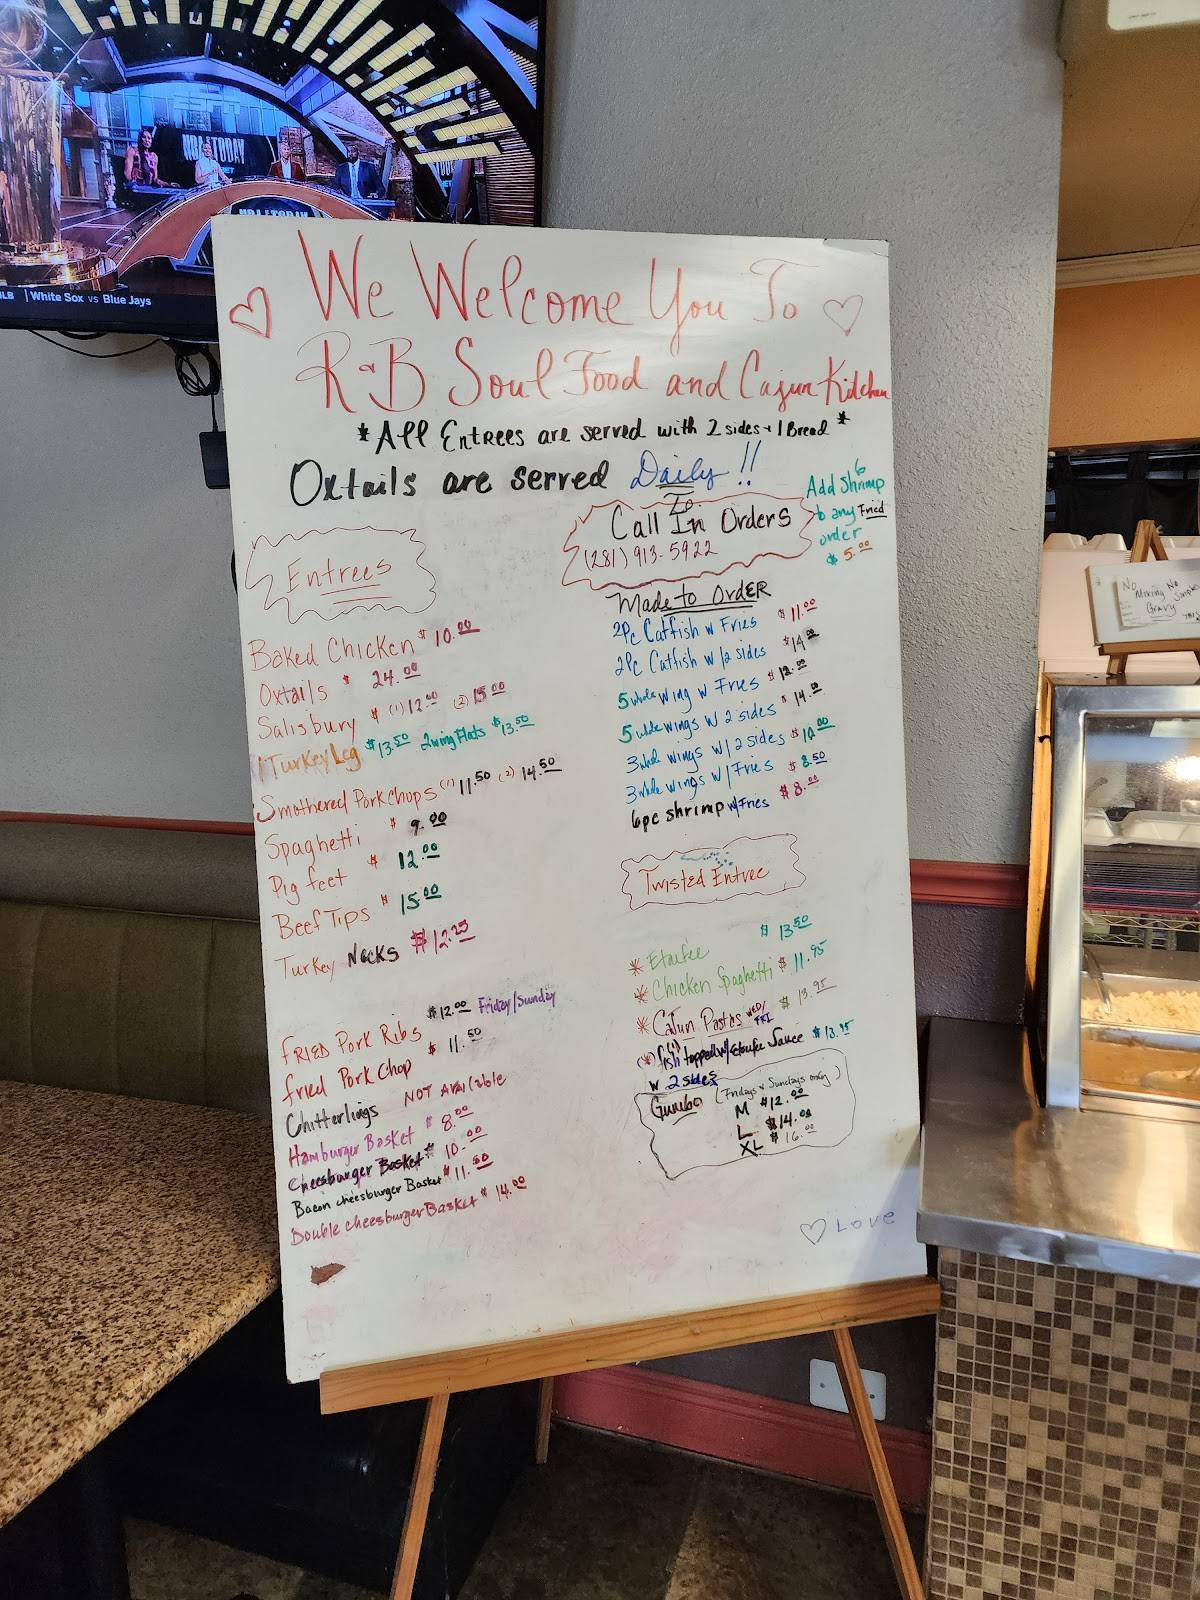 NBA TODAY
MLB | White Sox vs Blue Jays
We Welcome You To
R&B Soul Food and Cajun Kitchen
*All Entrees are served with 2 sides + 1 Bread*
Oxtails are served Daily!!
Add 6 Shrimp
to any Fried
order
$5.00
Entrees
Baked Chicken $10.00
Oxtails $24.00
Salisbury $(1)12.00 (2)15.00
1 Turkey Leg $13.50 2 wing Flats $13.50
Smothered Pork Chops (1)11.50 (2)14.50
Spaghetti $9.00
Pig feet $12.00
Beef Tips $15.00
Turkey Necks $12.25
$12.00 Friday/Sunday
FRIED Pork Ribs
fried Pork Chop $11.50
Chitterlings NOT Available
Hamburger Basket $8.00
Cheesburger Basket $10.00
Bacon cheesburger Basket $11.50
Double cheesburger Basket $14.00
To
Call In Orders
(281) 913-5922
Made to OrdER
2Pc Catfish w Fries $11.00
2Pc Catfish w/2 sides $14.00
5 whole wing w Fries $12.00
5 whole wings w 2 sides $14.00
3 whole wings w/2 sides $10.00
3 whole wings w/Fries $8.50
6pc shrimp w/Fries $8.00
Twisted Entree
$13.50
* Etoufee
* Chicken Spaghetti $11.95
* Cajun Pastas WED/FRI $13.95
(*) fish topped w/ Etoufee Sauce $13.95
w 2 sides
Gumbo (Fridays & Sundays only)
M $12.00
L $14.00
XL $16.00
♡ Love
No
Mixing No
Gravy